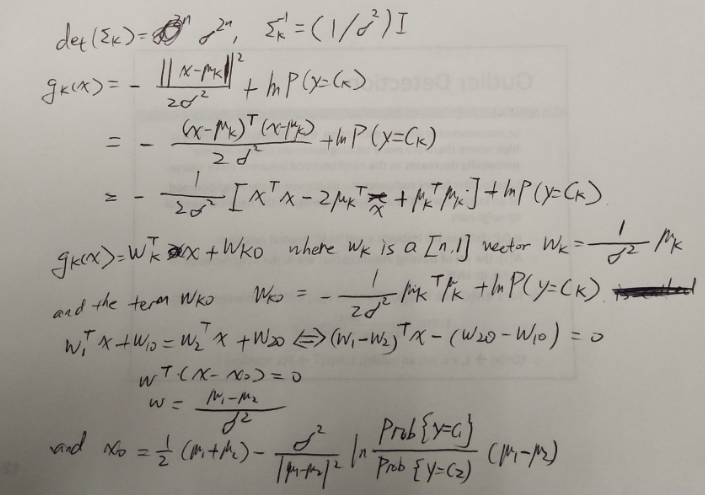 det(Σ_K) = σ^{2n}, Σ_K^{-1} = (1/σ²) I
g_K(x) = - ||x-μ_K||² / 2σ² + ln P(y=C_K)
= - (x-μ_K)^T (x-μ_K) / 2σ² + ln P(y=C_K)
= - 1/2σ² [x^T x - 2μ_K^T x + μ_K^T μ_K] + ln P(y=C_K)
g_K(x) = W_K^T x + W_K0 where w_K is a [n,1] vector W_K = 1/σ² μ_K
and the term W_K0 W_K0 = - 1/2σ² μ_K^T μ_K + ln P(y=C_K)
W_1^T x + W_10 = W_2^T x + W_20 ⟺ (W_1-W_2)^T x - (W_20 - W_10) = 0
W^T · (x - x_0) = 0
w = μ_1-μ_2 / σ²
and x_0 = 1/2 (μ_1+μ_2) - σ² / |μ_1-μ_2|² ln Prob{y=C_1} / Prob{y=C_2} (μ_1-μ_2)
Outlier Detection